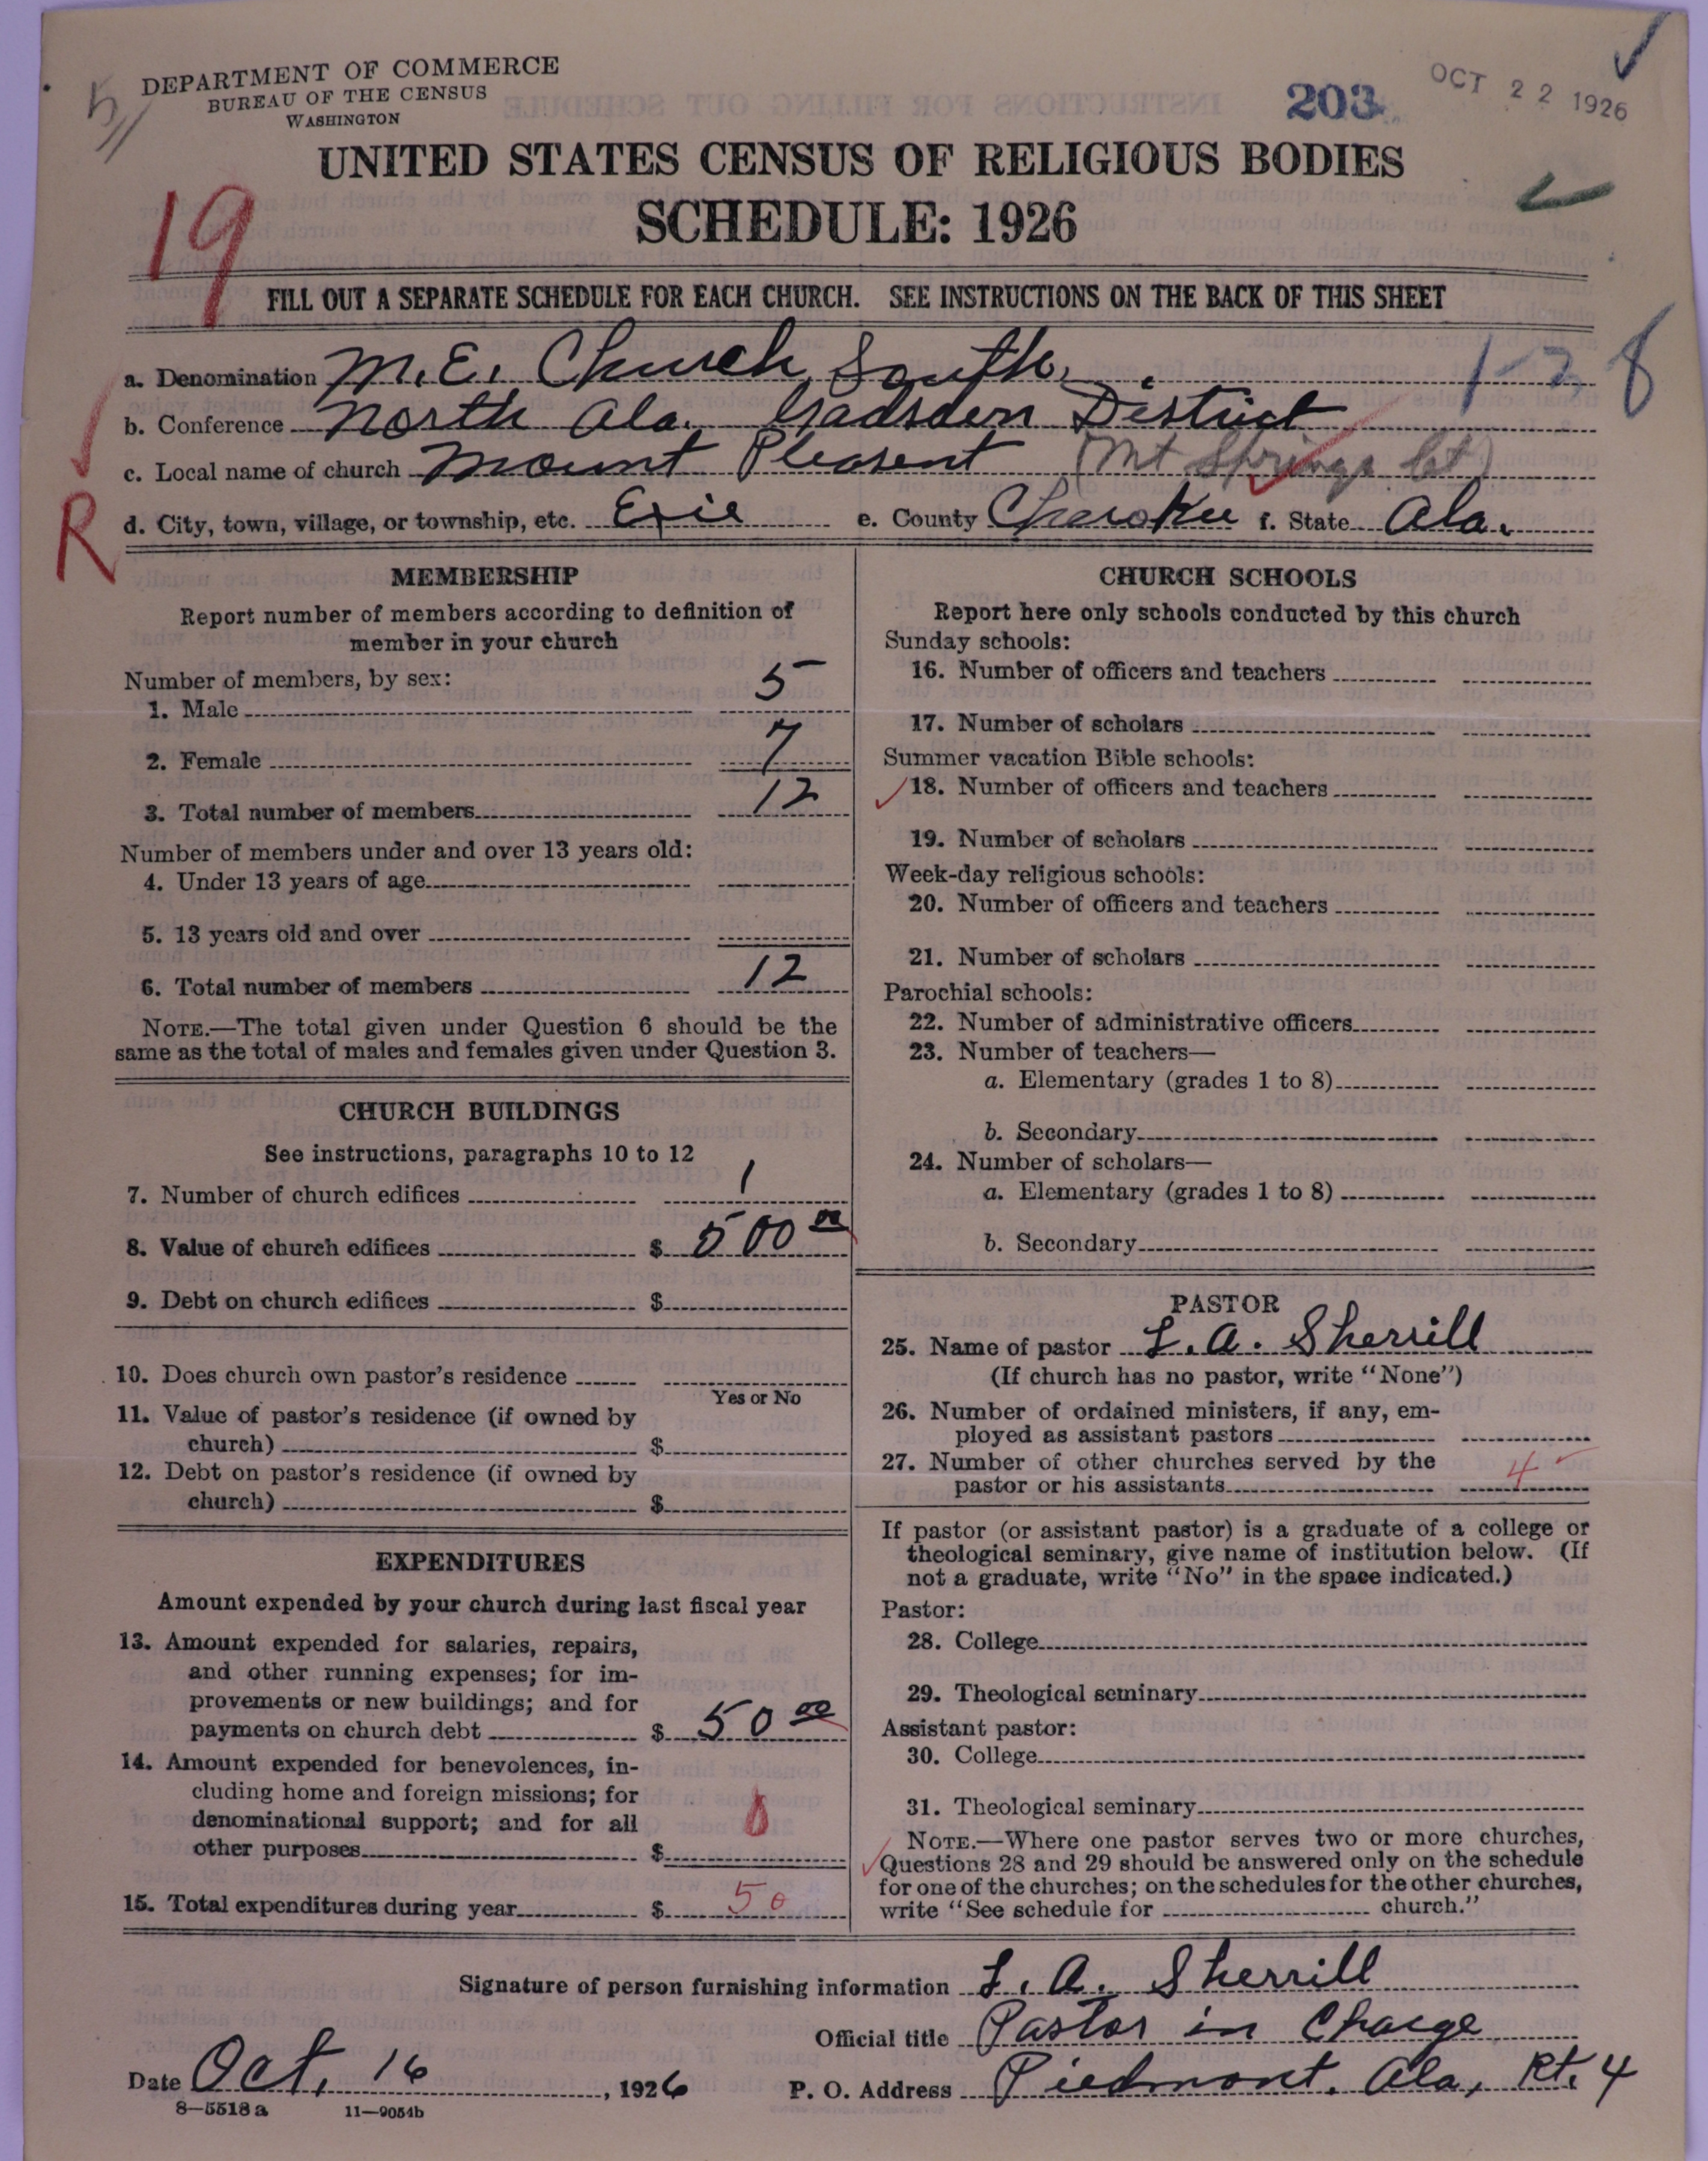 DEPARTMENT OF COMMERCE
BUREAU OF THE CENSUS
WASHINGTON
203
OCT 22 1926
UNITED STATES CENSUS OF RELIGIOUS BODIES
SCHEDULE: 1926
19
FILL OUT A SEPARATE SCHEDULE FOR EACH CHURCH. SEE INSTRUCTIONS ON THE BACK OF THIS SHEET
a. Denomination M. E. Church, South.
1-2 8
b. Conference North Ala. Gadsden District
c. Local name of church Mount Pleasent (Mt Springs
R
d. City, town, village, or township, etc. Exie e. County Cherokee f. State Ala.
MEMBERSHIP
Report number of members according to definition of
member in your church
Number of members, by sex:
1. Male 5
2. Female 7
3. Total number of members 12
Number of members under and over 13 years old:
4. Under 13 years of age
5. 13 years old and over
6. Total number of members 12
NOTE.—The total given under Question 6 should be the
same as the total of males and females given under Question 3.
CHURCH BUILDINGS
See instructions, paragraphs 10 to 12
7. Number of church edifices 1
8. Value of church edifices $ 500 00
9. Debt on church edifices $
10. Does church own pastor's residence
Yes or No
11. Value of pastor's residence (if owned by
church) $
12. Debt on pastor's residence (if owned by
church) $
EXPENDITURES
Amount expended by your church during last fiscal year
13. Amount expended for salaries, repairs,
and other running expenses; for im-
provements or new buildings; and for
payments on church debt $ 50 00
14. Amount expended for benevolences, in-
cluding home and foreign missions; for
denominational support; and for all
other purposes $ 0
15. Total expenditures during year $ 50
CHURCH SCHOOLS
Report here only schools conducted by this church
Sunday schools:
16. Number of officers and teachers
17. Number of scholars
Summer vacation Bible schools:
18. Number of officers and teachers
19. Number of scholars
Week-day religious schools:
20. Number of officers and teachers
21. Number of scholars
Parochial schools:
22. Number of administrative officers
23. Number of teachers—
a. Elementary (grades 1 to 8)
b. Secondary
24. Number of scholars—
a. Elementary (grades 1 to 8)
b. Secondary
PASTOR
25. Name of pastor L. A. Sherrill
(If church has no pastor, write "None")
26. Number of ordained ministers, if any, em-
ployed as assistant pastors
27. Number of other churches served by the
pastor or his assistants 4
If pastor (or assistant pastor) is a graduate of a college or
theological seminary, give name of institution below. (If
not a graduate, write "No" in the space indicated.)
Pastor:
28. College
29. Theological seminary
Assistant pastor:
30. College
31. Theological seminary
NOTE.—Where one pastor serves two or more churches,
Questions 28 and 29 should be answered only on the schedule
for one of the churches; on the schedules for the other churches,
write "See schedule for church."
Signature of person furnishing information L. A. Sherrill
Official title Pastor in Charge
Date Oct. 16, 1926 P. O. Address Piedmont. Ala, Rt. 4
8—5518 a 11—9054b